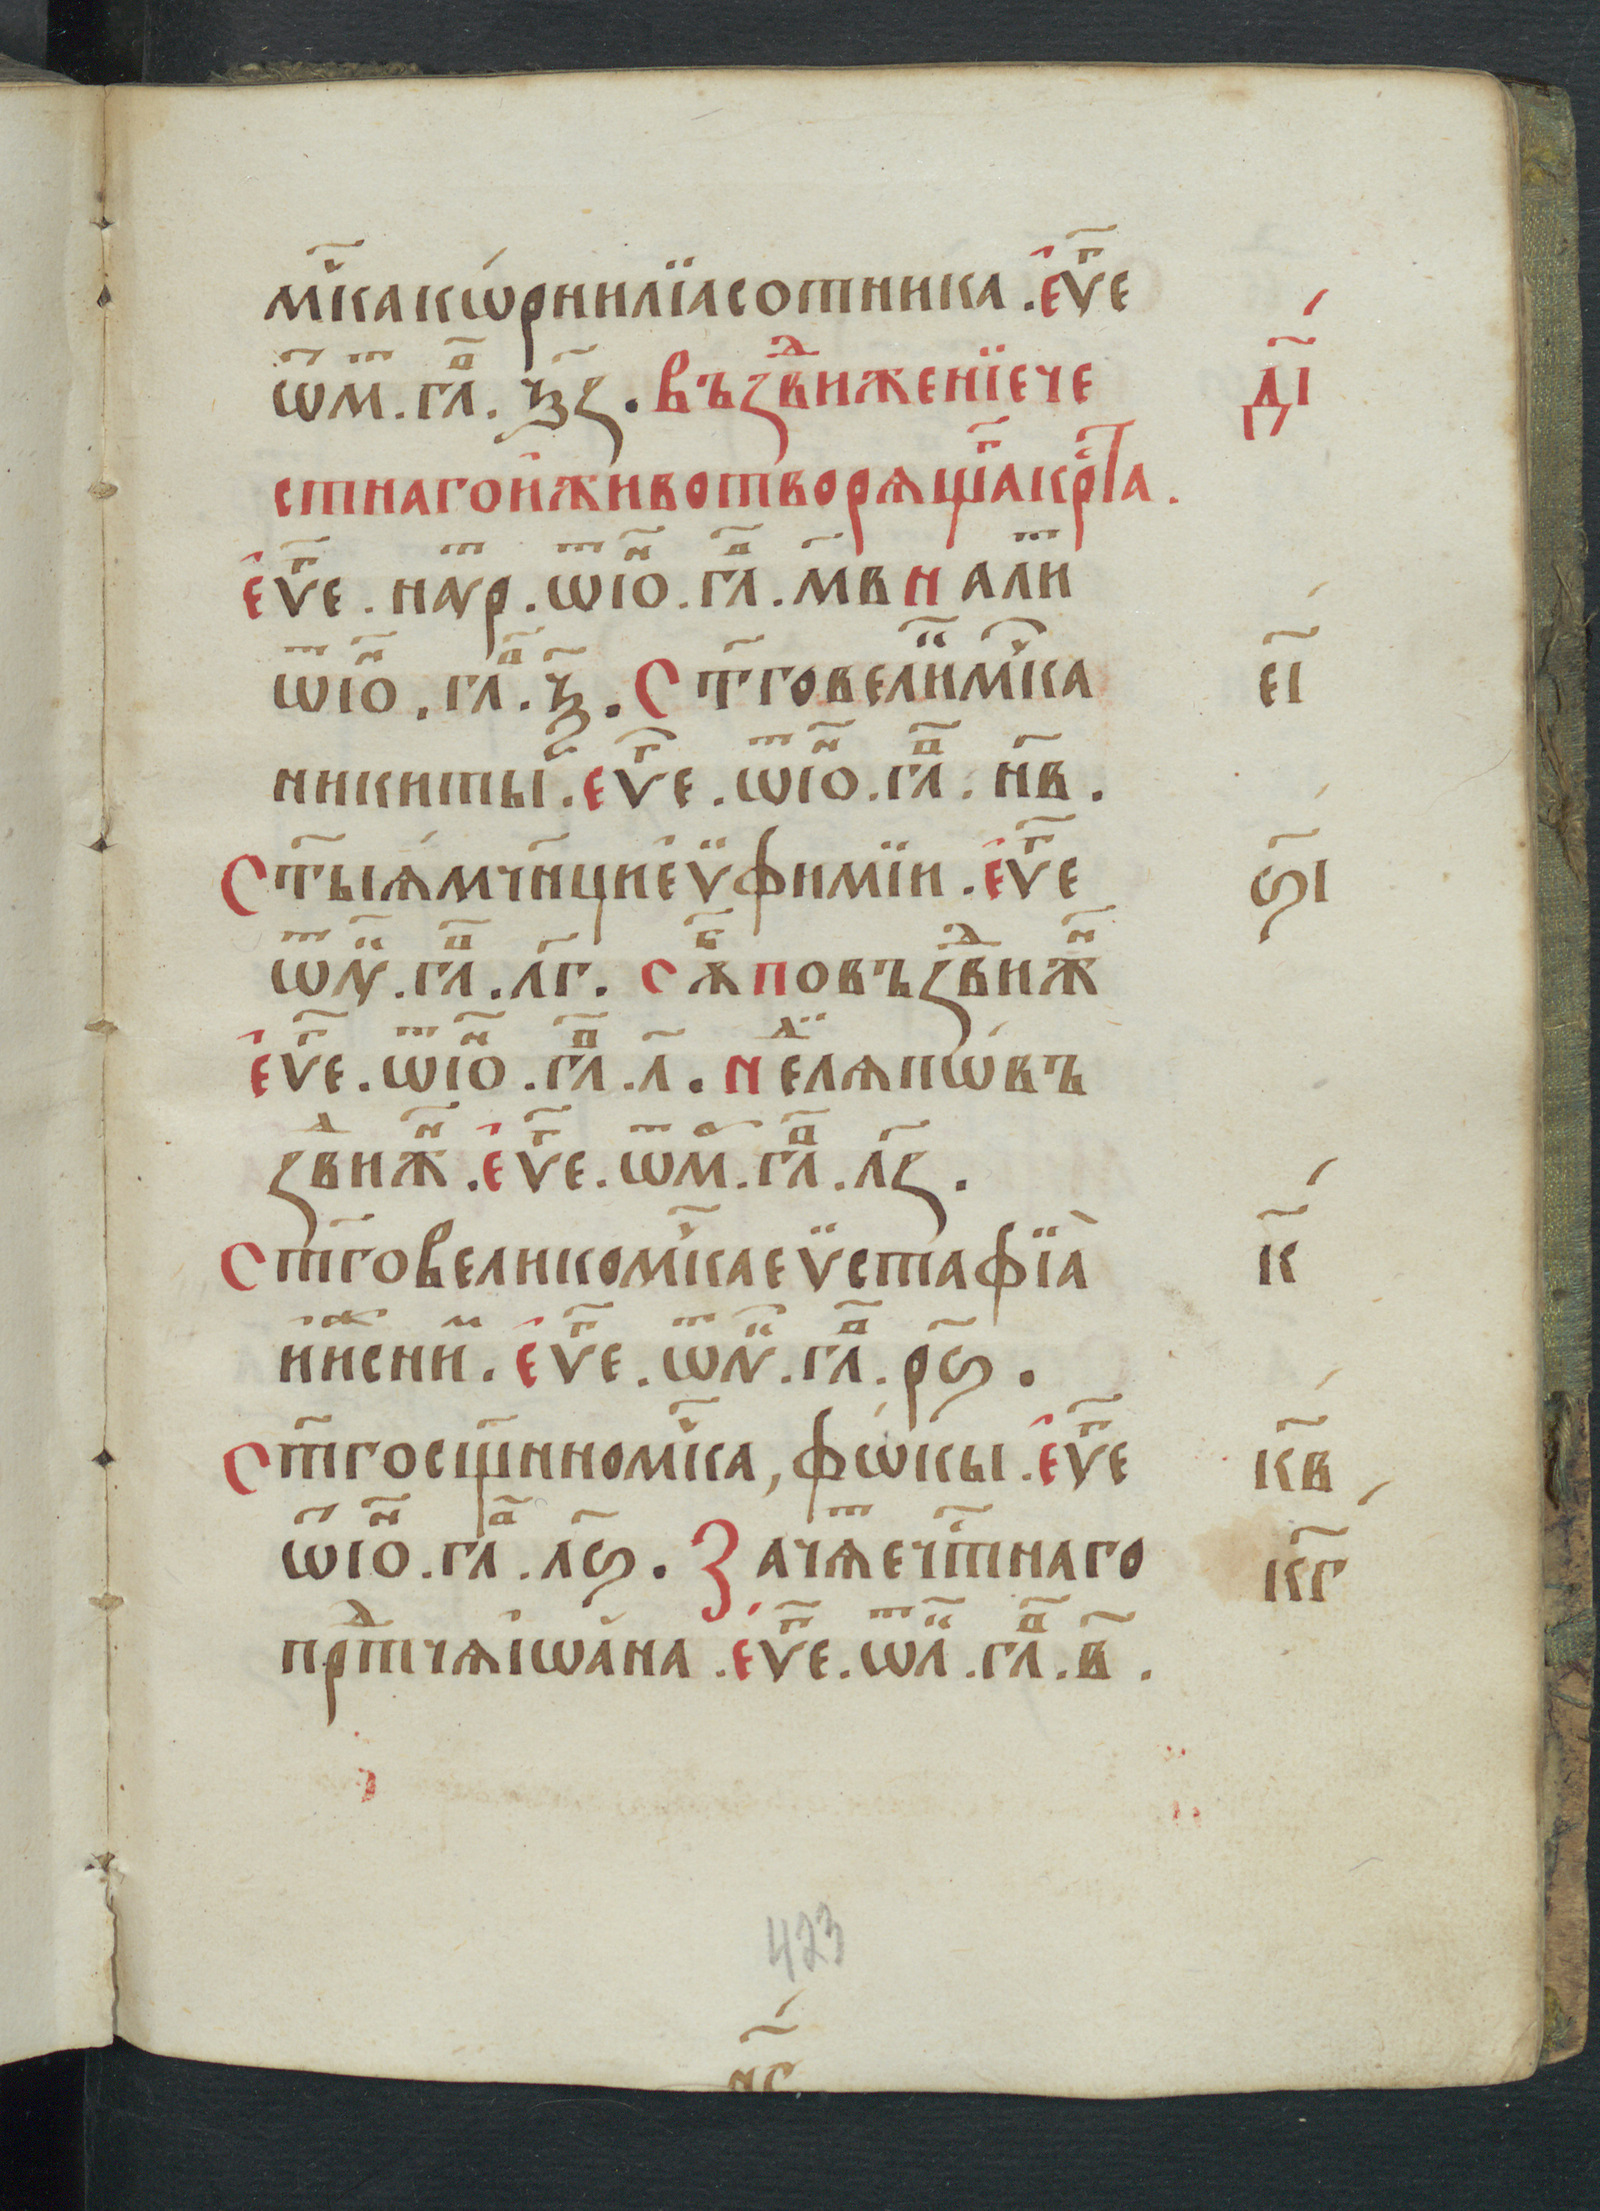 мч҃ка кѡ́рнилїа сотника . є҆ѵⷢ҇е
ѿ м . глⷡ҇ . ч҃з . въздвⷤиженїе че
стнаго и҆ животворѧщаⷢ҇ крⷭ҇та .
є҆ѵⷢ҇е . на ѹⷮр . ѿ іѡⷩ҇ . глⷡ҇ . м҃в на лиⷮ
ѿ іѡⷩ҇ . глⷡ҇ . ч҃ . Ст҃го великⷪмч҃ка
никиты . є҆ѵⷢ҇е . ѿ іѡⷩ҇ . глⷡ҇ . н҃в .
Ст҃ыѧ мч҃нци є҆ѵфимїи . є҆ѵⷢ҇е
ѿ лѹⷦ . глⷡ҇ . л҃г . сѧⷠ по въздⷣвижⷩ
є҆ѵⷢ҇е . ѿ іѡⷩ҇ . глⷡ҇ . л҃ . неⷣлѧ по въ
здⷣвижⷩ . є҆ѵⷢ҇е . ѿ маⷴ . глⷡ҇ . л҃з .
Ст҃го великомч҃ка єѵстафїа
и҆ иⷤ с ниⷨ . є҆ѵⷢ҇е . ѿ лѹⷦ . глⷡ҇ . р҃ѕ .
Ст҃го сщ҃нномч҃ка , фѡ́кы . є҆ѵⷢ҇е
ѿ іѡⷩ҇ . глⷡ҇ . л҃ѕ . Зачѧⷮе чⷭ҇тнаго
прⷣтчѧ іѡа́на . є҆ѵⷢ҇е . ѿ лⷦ . глⷡ҇ . в҃ .
д҃і
е҃і
ѕ҃і
к҃
к҃в
к҃г
423